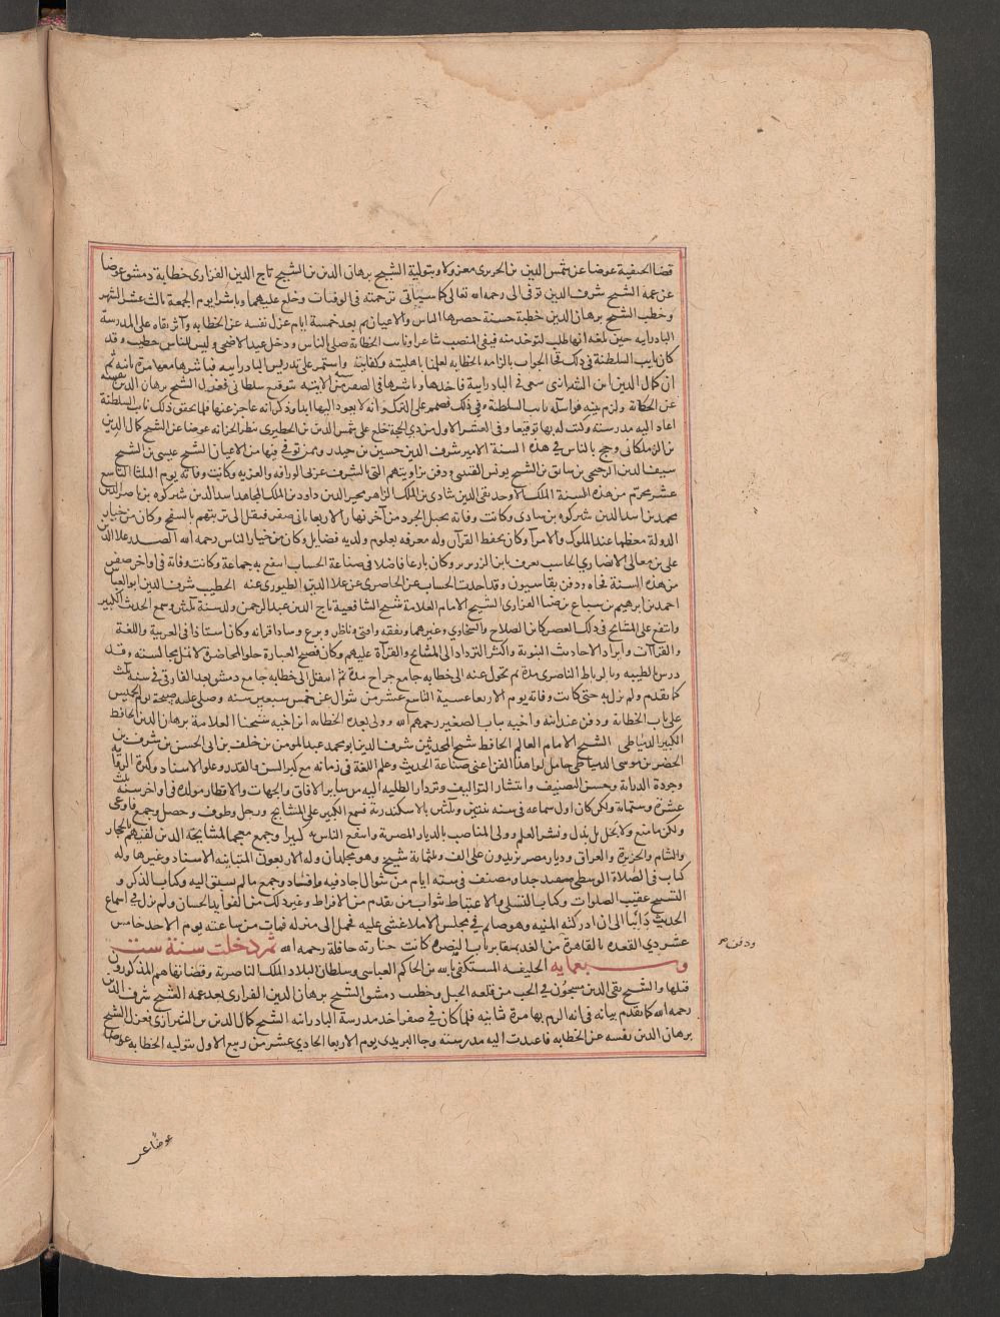 قضا الحنفية عوضا عن شمس الدين بن الحريري معزولا وبتولية الشيخ برهان الدين بن الشيخ تاج الدين الفزاري خطابة دمشق عوضا
عن عمه الشيخ شرف الدين توفي الى رحمه الله تعالى كما سياتي ترجمته في الوفيات وخلع عليهما وباشر ايوم الجمعة ثالث عشر الشهر
وخطب الشيخ برهان الدين خطبة حسنة حضرها الناس والاعيان ثم بعد خمسة ايام عزل نفسه عن الخطابه وآثر بقاه على المدرسة
البادرايه حين بلغه انها طلبت لتوخذ منه فبقى المنصب شاغرا ونائب الخطابة صلى الناس ودخل عيد الاضحى وليس للناس خطيب وقد
كاتب نايب السلطنة في ذلك فجا الجواب بالزامه بالخطابه لعلمنا باهليته وكفايته واستمر على تدريس البادرايه فباشرها معها مرة ثانيه ثم
ان كمال الدين ابن الشيرازي سعى في البادراسية فاخذها وباشرها في الصفر من الاتيه بتوقيع سلطاني فعزل الشيخ برهان الدين نفسه
عن الخطابة ولزم بيته فراسله نايب السلطنة في ذلك فصمم على الترك وانه لا يعود اليها ابدا وذكر انه عاجز عنها فلما تحقق ذلك نايب السلطنة
اعاد اليه مدرسته وكتب له بها توقيعا وفي العشر الاول من ذي الحجة خلع على شمس الدين بن الحطيري بنظر الخزانه عوضا عن الشيخ كمال الدين
بن الزملكاني وحج بالناس في هذه السنة الامير شرف الدين حسين بن حيدر وممن توفي فيها من الاعيان الشيخ عيسى بن الشيخ
سيف الدين الرجيحي بن سابق بن الشيخ يونس القنيني ودفن بزاويتهم التي بالشرف غربي الوراقه والعزيه وكانت وفاته يوم الثلثا التاسع
عشر محرم من هذه السنة الملك الاوحد تقي الدين شادي بن الملك الزاهر مجير الدين داود بن الملك المجاهد اسد الدين شيركوه بن ناصر الدين
محمد بن اسد الدين شيركوه بن شادي وكانت وفاته بجبل الجرد من آخر نهار الاربعا ثاني صفر فنقل الى تربتهم بالسفح وكان من خيار
الدولة معظما عند الملوك والامرآ وكان يحفظ القرآن وله معرفه بعلوم ولديه فضايل وكان من خيار الناس رحمه الله الصدر علا الدين
على بن معالي الانصاري الحاسب يعرف بابن الزرير وكان بارعا فاضلا في صناعة الحساب انتفع به جماعة وكانت وفاته في اواخر صفر
من هذه السنة فجاه ودفن بقاسيون وقد اخذت الحساب عن الحاضري عن علا الدين الطيوري عنه الخطيب شرف الدين ابو العباس
احمد بن ابرهيم بن سباع بن ضيا الفزاري الشيخ الامام العلامة شيخ الشافعية تاج الدين عبد الرحمن ولد سنة ثلثين وسمع الحديث الكبير
وانتفع على المشايخ في ذلك العصر كابن الصلاح والسخاوي وغيرهما وتفقه وافتى وناظر وبرع وساد اقرانه وكان استاذا في العربية واللغة
والقراآت وايراد الاحاديث النبوية والكثر الترداد الى المشايخ والقرآة عليهم وكان فصيح العبارة حلو المحاضرة لا تمل مجالسته وقد
درس بالطيبه وبالرباط الناصري مدة ثم تحول عنه الى خطابه جامع جراح مدة ثم انتقل الى خطابه جامع دمشق بعد الفارقي في سنة ثلث
كما تقدم ولم يزل به حتى كانت وفاته يوم الاربعا عشية التاسع عشر من شوال عن خمس سبعين سنه وصلى عليه صبيحة يوم الخميس
على باب الخطابة ودفن عند ابيه واخيه بباب الصغير رحمهم الله وولى بعده الخطابه ابن اخيه شيخنا العلامة برهان الدين الحافظ
الكبير الدمياطي الشيخ الامام العالم الحافظ شيخ المحدثين شرف الدين ابو محمد عبد المومن بن خلف بن ابي الحسن بن شرف بن
الخضر بن موسى الدمياطي حامل لوا هذا الفن اعني صناعة الحديث وعلم اللغة في زمانه مع كبر السن والقدر وعلو الاسناد وكثرة الروايه
وجودة الدراية وحسن التصنيف وانتشار التواليف وترداد الطلبه اليه من ساير الافاق والجهات والاقطار مولده في اواخر سنه ثلث
عشرة وستماية ولكن كان اول سماعه في سنه ثنتين وثلثين بالاسكندرية فسمع الكثير على المشايخ ورحل وطوف وحصل وجمع فاوعى
ولكن ما منع ولا بخل بل بذل ونشر العلم وولى المناصب بالديار المصرية وانتفع الناس به كثيرا وجمع معجما لمشايخه الذين لقيهم بالحجاز
والشام والجزيرة والعراق وديار مصر يزيدون على الف وثلثماية شيخ وهو مجلدان وله الاربعون المتباينة الاسناد وغيرها وله
كتاب في الصلاة الوسطى مفيد جدا ومصنف في سته ايام من شوال اجاد فيه وافاد وجمع ما لم يسبق اليه وكتاب الذكر و
التسبيح عقيب الصلوات وكتاب التسلي والاغتباط بثواب من تقدم من الافراط وغير ذلك من الفوايد الحسان ولم يزل في اسماع
الحديث دايبا الى ان ادركته المنية وهو صايم في مجلس الاملا غشى عليه فحمل الى منزله فمات من ساعته يوم الاحد خامس
عشر ذي القعده بالقاهرة من الغد بمقابر باب النصر كانت جنازته حافلة رحمه الله ثم دخلت سنة ست
ودفن
وسبعمايه الخليفه المستكفي بالله بن الحاكم العباسي وسلطان البلاد الملك الناصر وقضاتها هم المذكورون
قبلها والشيخ تقي الدين مسجون في الجب من قلعه الجبل وخطيب دمشق الشيخ برهان الدين الفزاري بعد عمه الشيخ شرف الدين
رحمه الله كما تقدم بيانه في انه الزم بها مرة ثانيه فلما كان في صفر اخذ مدرسة البادرانيه الشيخ كمال الدين بن الشيرازي فعزل الشيخ
برهان الدين نفسه عن الخطابه فاعيدت اليه مدرسته وجا البريدي يوم الاربعا الحادي عشر من ربيع الاول بتوليه الخطابه عوضا
عوضا عن